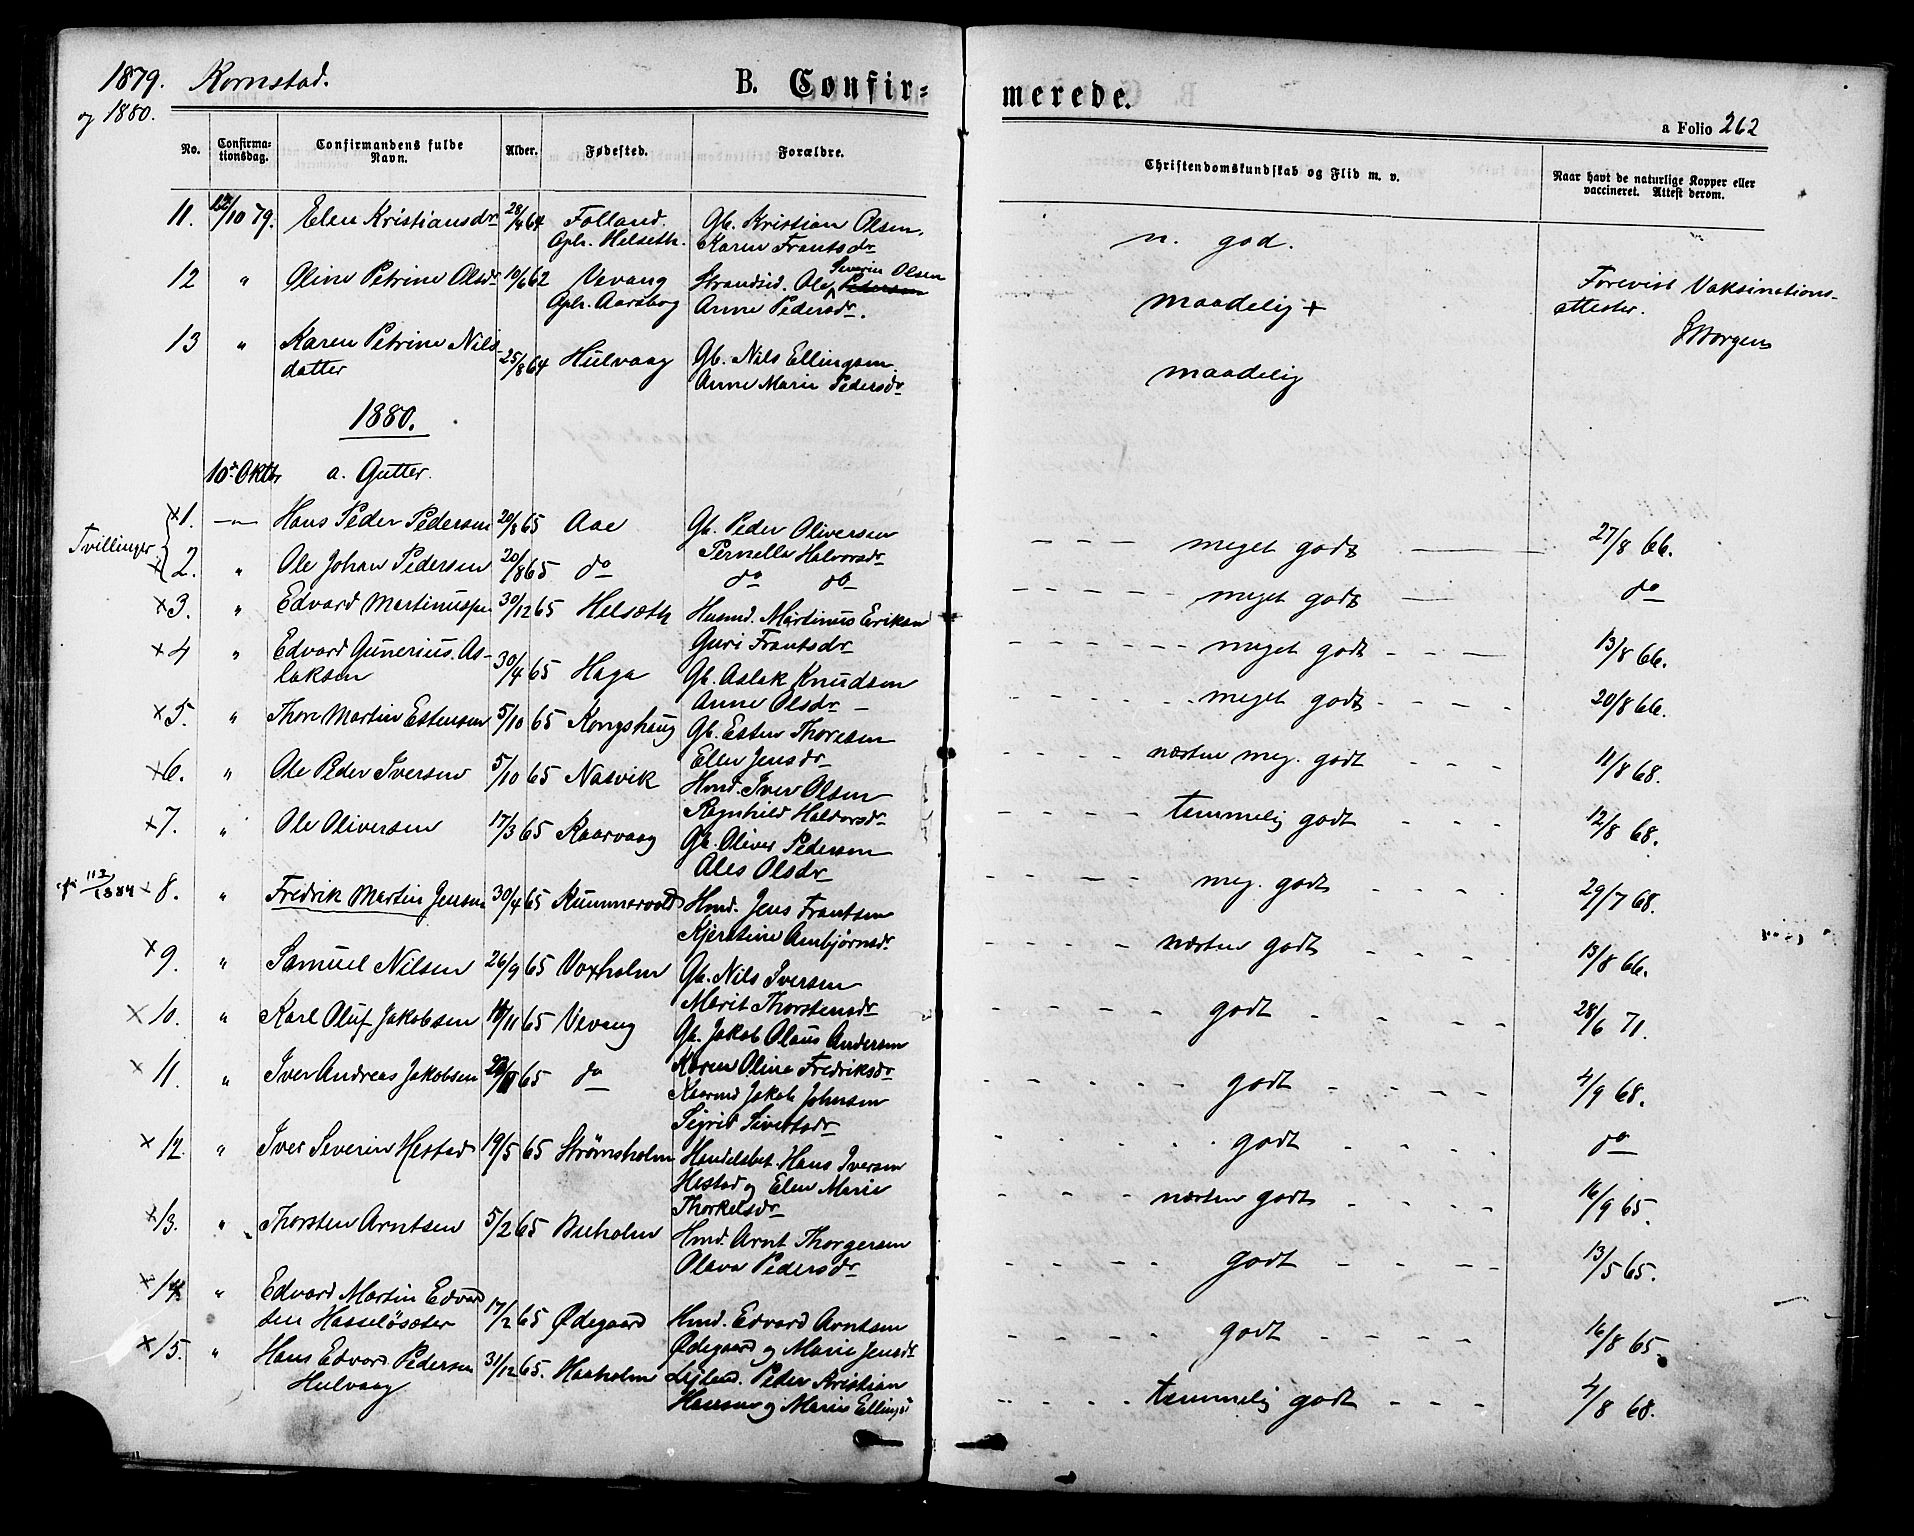 1879. Kornstad. B. Confirmerede.
og 1880. a Folio 262
No. Confirmationsdag. Confirmandens fulde Navn. Alder. Fødested. Forældre. Christendomskundskab og Flid m. v. Naar havt de naturlige Kopper eller vaccineret. Attest derom.
11. 12/10 79. Elen Kristiansdr 28/4 64 Folland. Gb. Kristian Olsen, n. god.
Oph. Helseth. Karen Frantsdr
12 " Oline Petrine Olsdr 10/6 62 Vevang Strandsid. Ole Severin Olsen Pedersen maadelig + Forevist Vaksinations-
Oph. Aarsbog Anne Pedersdr. attester.
13 " Karen Petrine Nils- 25/8 64 Hulvaag Gb. Nils Ellingsen. maadelig
datter Anne Marie Pedersdr
1880.
10de Oktbr a. Gutter.
Tvillinger
x1. —"— Hans Peder Pedersen 20/8 65 Aae Gb. Peder Oliversen - - - meget godt — 27/8 66.
Pernella Halvorsdr
x2. " Ole Johan Pedersen 20/8 65 do do do - - - meget godt — do
x3. " Edvard Martinussen 30/12 65 Helsæth Husmd. Martinus Eriksen - - - meget godt - - - 13/8 66.
Guri Frantsdr
x4 " Edvard Gunerius As- 30/4 65 Haga Gb. Aslak Knudsen - - - meget godt - - - 20/8 66.
laksen Anne Olsdr
x5. " Thore Martin Estensen 5/10 65 Kongshaug Gb. Esten Thoresen - - - næsten meg. godt - - - 11/8 68.
Elen Jensdr
x6. " Ole Peder Iversen 5/10 65 Nasvik Hmd. Iver Olsen - - - temmelig godt - - - 12/8 68.
Ragnhild Haldorsdr
x7. " Ole Oliversen 17/3 65 Kaarvaag Gb. Oliver Pedersen - - - meg. godt - - - 29/7 68.
Ales Olsdr
113/1884 x 8. " Fredrik Martin Jensen 30/4 65 Kummervold Hmd. Jens Frantsen - - - næsten godt - - - 13/8 66.
Kjerstine Anbjørnsdr
x 9. " Samuel Nilsen 26/9 65 Voxholm Gb. Nils Iversen - - - godt - - - 28/6 71.
Marit Thorstensdr
x 10. " Karl Oluf Jakobsen 14/11 65 Vevang Gb. Jakob Olaus Andersen - - - godt - - - 4/9 68.
Karen Oline Fredriksdr
x 11. " Iver Andreas Jakobsen 65 do Kaarmd Jakob Johnsen - - - godt - - - do
Sigrid Sivertsdr
x 12. " Iver Severin Hestad 19/5 65 Strømsholm Handelsbet. Hans Iversen - - - næsten godt - - - 16/9 65.
Hestad og Elen Marie
Thorkelsdr
x 13. " Thorsten Arntsen 5/2 65 Bieholm Hmd. Arnt Thorgersen - - - godt - - - 13/5 65.
Olava Pedersdr
x 14. " Edvard Martin Edvard-
sen Hasseløsæter 17/2 65 Ødegaard Hmd. Edvard Arntsen - - - godt - - - 16/8 65.
Ødegaard og Marie Jensdr
x 15. " Hans Edvard Pedersen 31/12 65. Haaholm Leilend. Peder Kristian - - - temmelig godt - - - 4/8 68.
Hulvaag Hansen og Marie Ellings